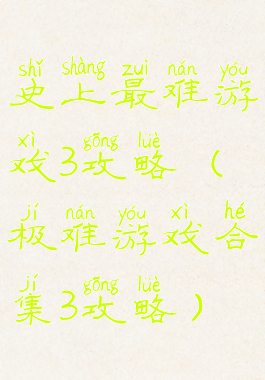 shǐ shàng zuì nán yóu
史上最难游
xì gōng lüè
戏3攻略（
jí nán yóu xì hé
极难游戏合
jí gōng lüè
集3攻略）